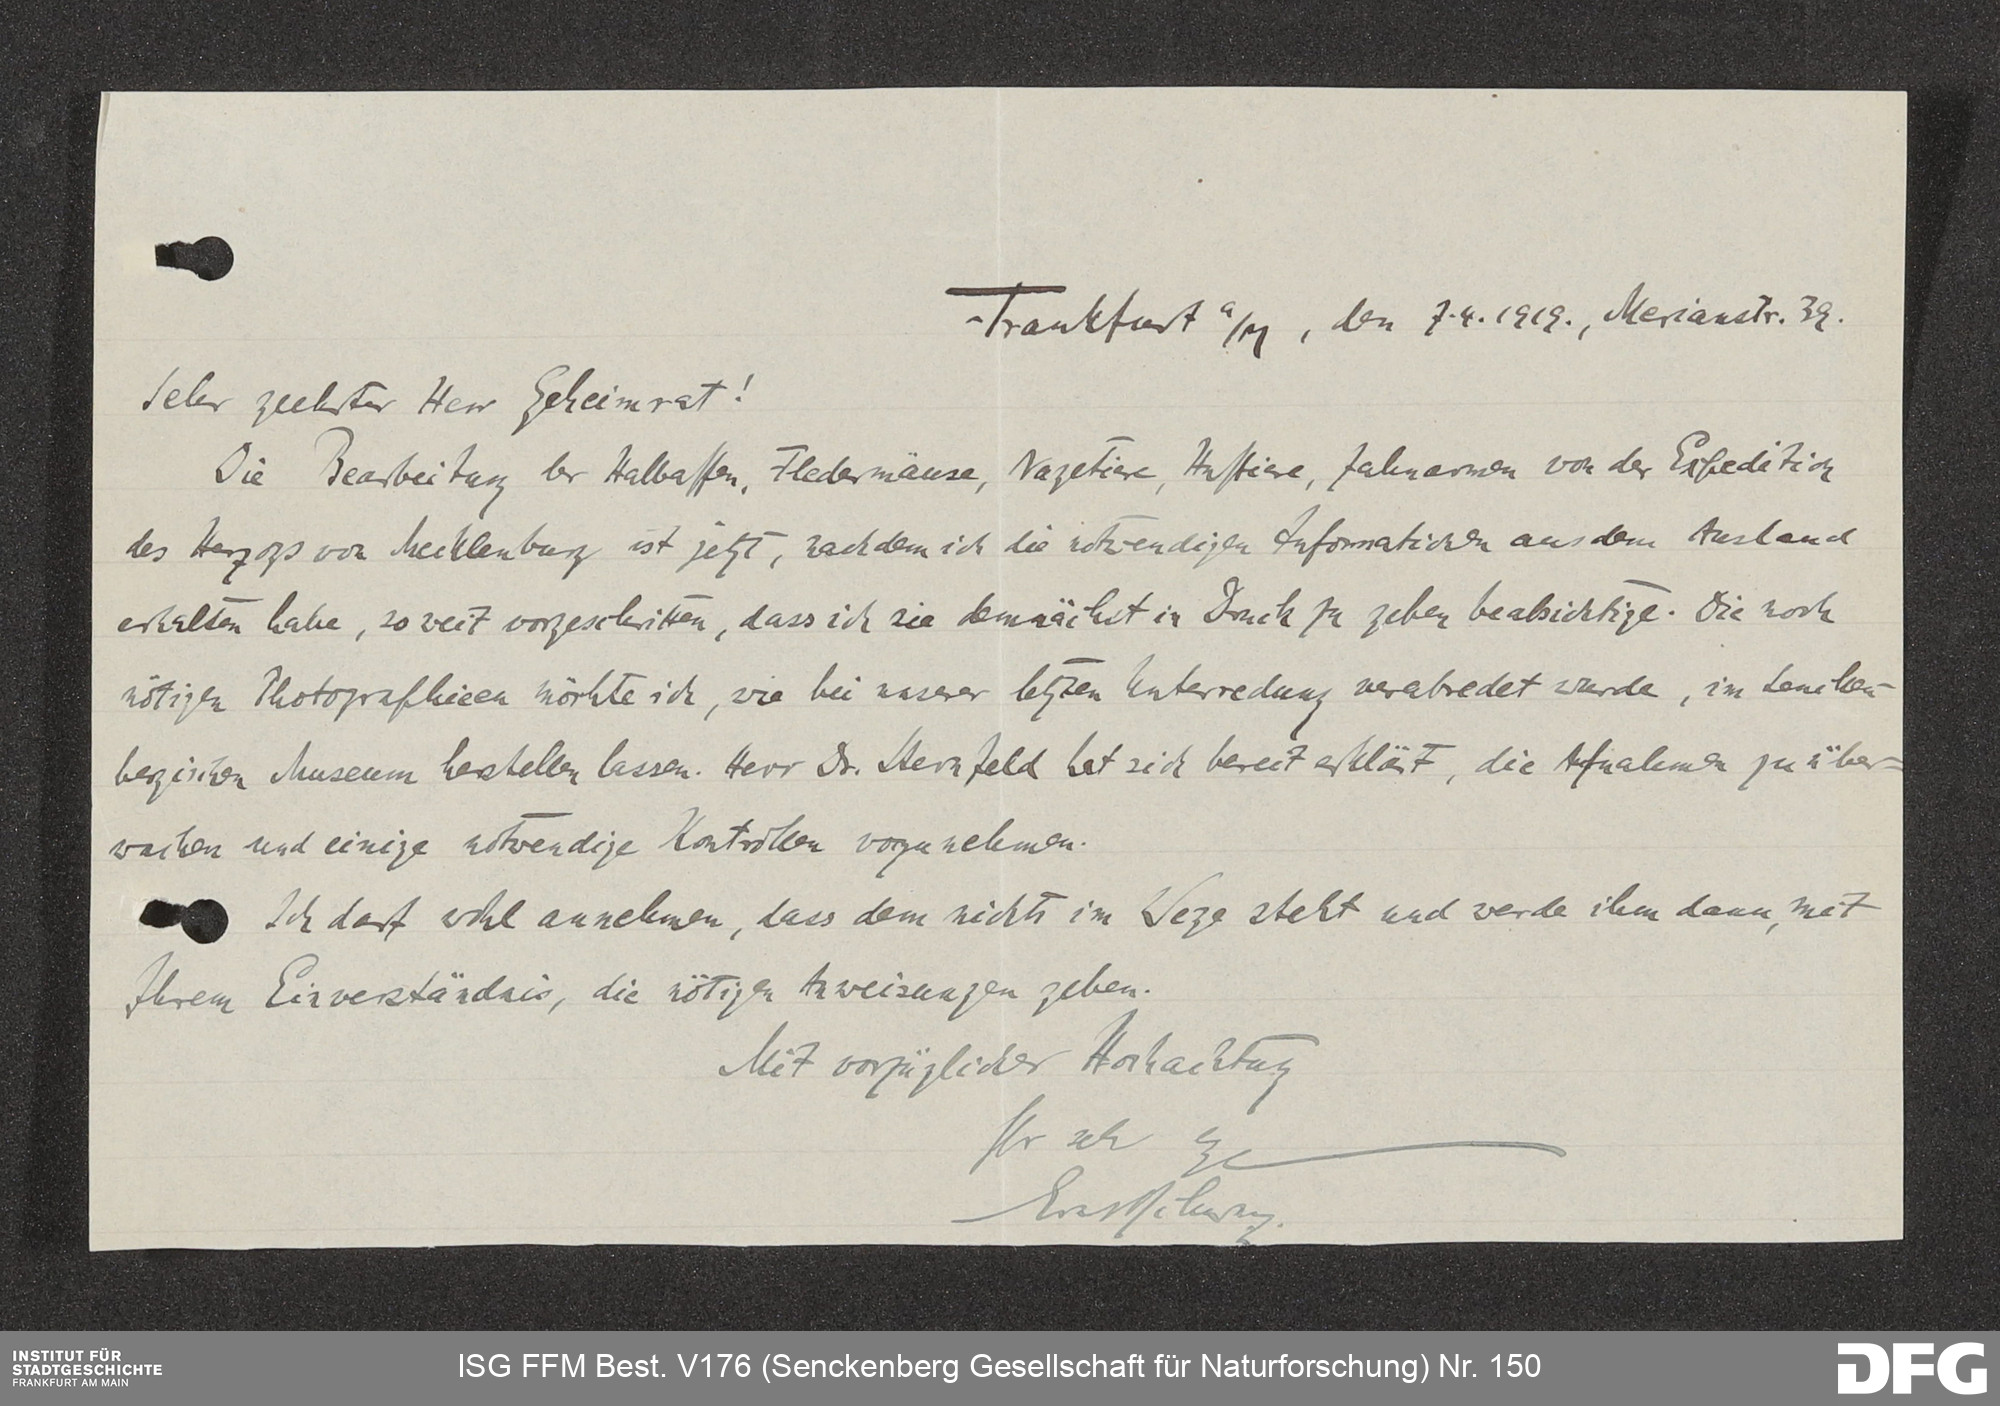 Frankfurt a/M, den 7.4.1919., Merianstr. 39.
Sehr geehrter Herr Geheimrat!
Die Bearbeitung der Halbaffen, Fledermäuse, Nagetiere, Huftiere, Zahnarmen von der Expedition
des Herzogs von Mecklenburg ist jetzt, nachdem ich die notwendigen Informationen aus dem Ausland
erhalten habe, so weit vorgeschritten, dass ich sie demnächst in Druck zu geben beabsichtige. Die noch
nötigen Photographieen möchte ich, wie bei unserer letzten Unterredung verabredet wurde, im Sencken-
bergischen Museum herstellen lassen. Herr Dr. Sternfeld hat sich bereit erklärt, die Aufnahmen zu über-
wachen und einige notwendige Kontrollen vorzunehmen.
Ich darf wohl annehmen, dass dem nichts im Wege steht und werde ihm dann, mit
Ihrem Einverständnis, die nötigen Anweisungen geben.
Mit vorzüglicher Hochachtung
Ihr sehr
Ernst Schwarz.
INSTITUT FÜR
STADTGESCHICHTE
FRANKFURT AM MAIN
ISG FFM Best. V176 (Senckenberg Gesellschaft für Naturforschung) Nr. 150
DFG